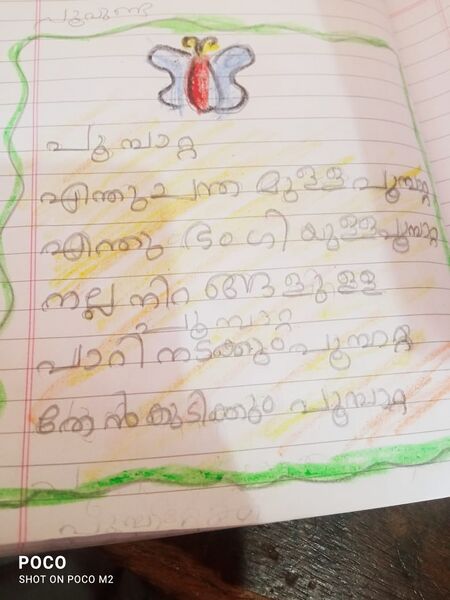 പൂമ്പാറ്റ
എന്തുചന്ത മുള്ള പൂമ്പാറ്റ
എന്തു ഭംഗി യുള്ളപൂമ്പാറ്റ
നല്ല നിറ ങ്ങളുള്ള
പൂമ്പാറ്റ
പാറി നടക്കും പൂമ്പാറ്റ
തേൻകുടിക്കും പൂമ്പാറ്റ
POCO
SHOT ON POCO M2